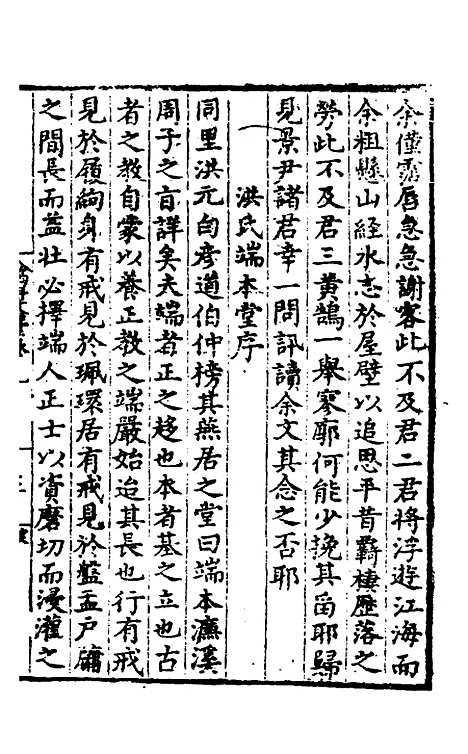 余僅露唇急急謝客此不及君二君將浮遊江海而
余粗懸山経水志於屋壁以追思平昔羇棲歷落之
勞此不及君三黄鵠一舉寥廓何能少挽其留耶歸
見景尹諸君幸一問訊讀余文其念之否耶
洪氏端本堂序
同里洪元白彦道伯仲榜其燕居之堂曰端本濂溪
周子之旨詳矣夫端者正之趍也本者基之立也古
者之教自蒙以養正教之端嚴始迨其長也行有戒
見於履絇身有戒見於珮環居有戒見於盤盂户牖
之間長而益壮必擇端人正士以資磨切而浸灌之